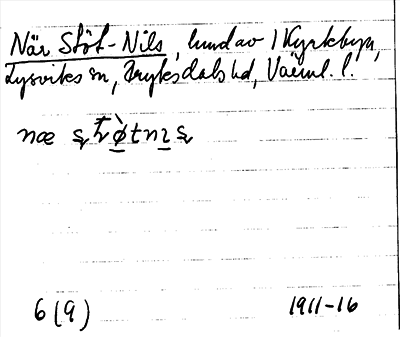 När Stöt-Nils, lund av i Kyrkebyn,
Lysviks sn, Fryksdals hd, Värml. l.
næ
6 (9) 1911-16